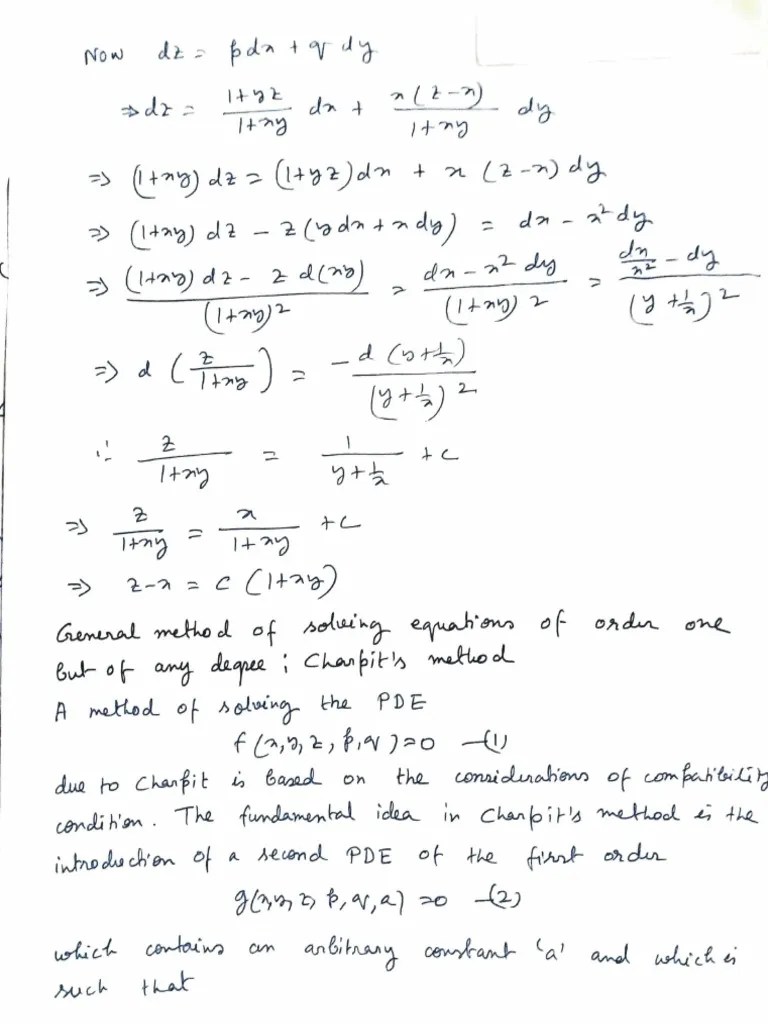 Now dz = pdx + q dy
⇒ dz = (1+yz)/(1+xy) dx + x(z-x)/(1+xy) dy
⇒ (1+xy) dz = (1+yz) dx + x (z-x) dy
⇒ (1+xy) dz - z(ydx + x dy) = dx - x² dy
⇒ ((1+xy) dz - z d(xy))/(1+xy)² = (dx - x² dy)/(1+xy)² = (dx/x² - dy)/(y + 1/x)²
⇒ d (z/(1+xy)) = -d (y + 1/x)/(y + 1/x)²
∴ z/(1+xy) = 1/(y + 1/x) + c
⇒ z/(1+xy) = x/(1+xy) + c
⇒ z-x = c (1+xy)
General method of solving equations of order one
but of any degree ; Charpit's method
A method of solving the PDE
f (x,y,z,p,q) = 0 —(1)
due to Charpit is based on the considerations of compatibility
condition. The fundamental idea in Charpit's method is the
introduction of a second PDE of the first order
g(x,y,z,p,q,a) = 0 —(2)
which contains an arbitrary constant 'a' and which is
such that